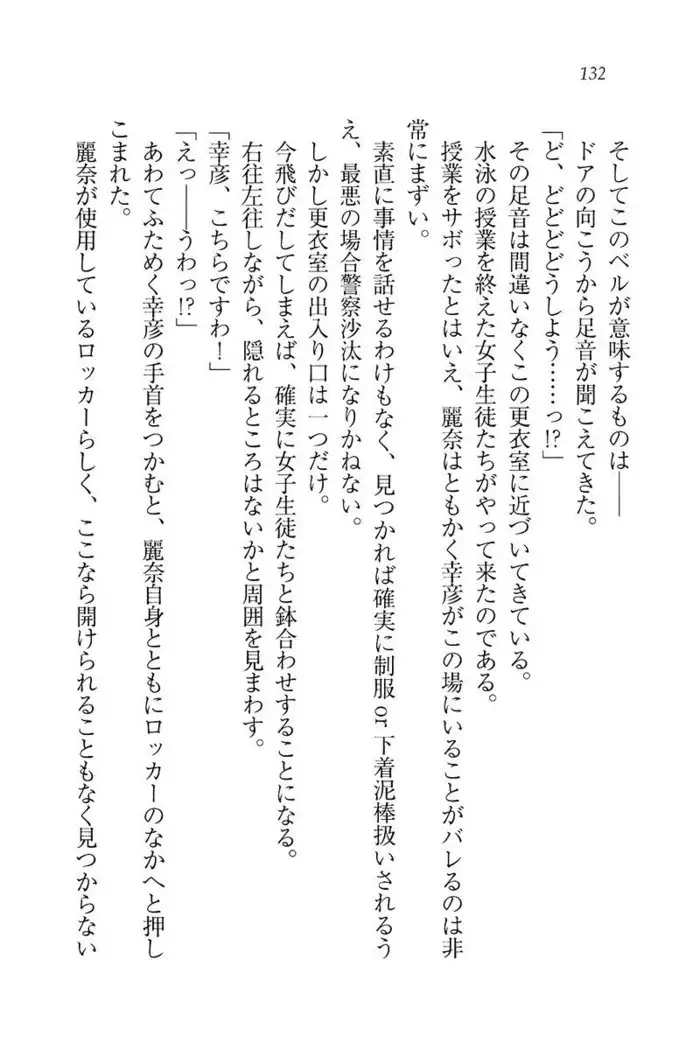 132
そしてこのベルが意味するものは――
ドアの向こうから足音が聞こえてきた。
「ど、どどどどうしよう……っ!?」
その足音は間違いなくこの更衣室に近づいてきている。
水泳の授業を終えた女子生徒たちがやって来たのである。
授業をサボったとはいえ、麗奈はともかく幸彦がこの場にいることがバレるのは非
常にまずい。
素直に事情を話せるわけもなく、見つかれば確実に制服or下着泥棒扱いされるう
え、最悪の場合警察沙汰になりかねない。
しかし更衣室の出入り口は一つだけ。
今飛びだしてしまえば、確実に女子生徒たちと鉢合わせすることになる。
右往左往しながら、隠れるところはないかと周囲を見まわす。
「幸彦、こちらですわ！」
「えっ――うわっ!?」
あわてふためく幸彦の手首をつかむと、麗奈自身とともにロッカーのなかへと押し
こまれた。
麗奈が使用しているロッカーらしく、ここなら開けられることもなく見つからない